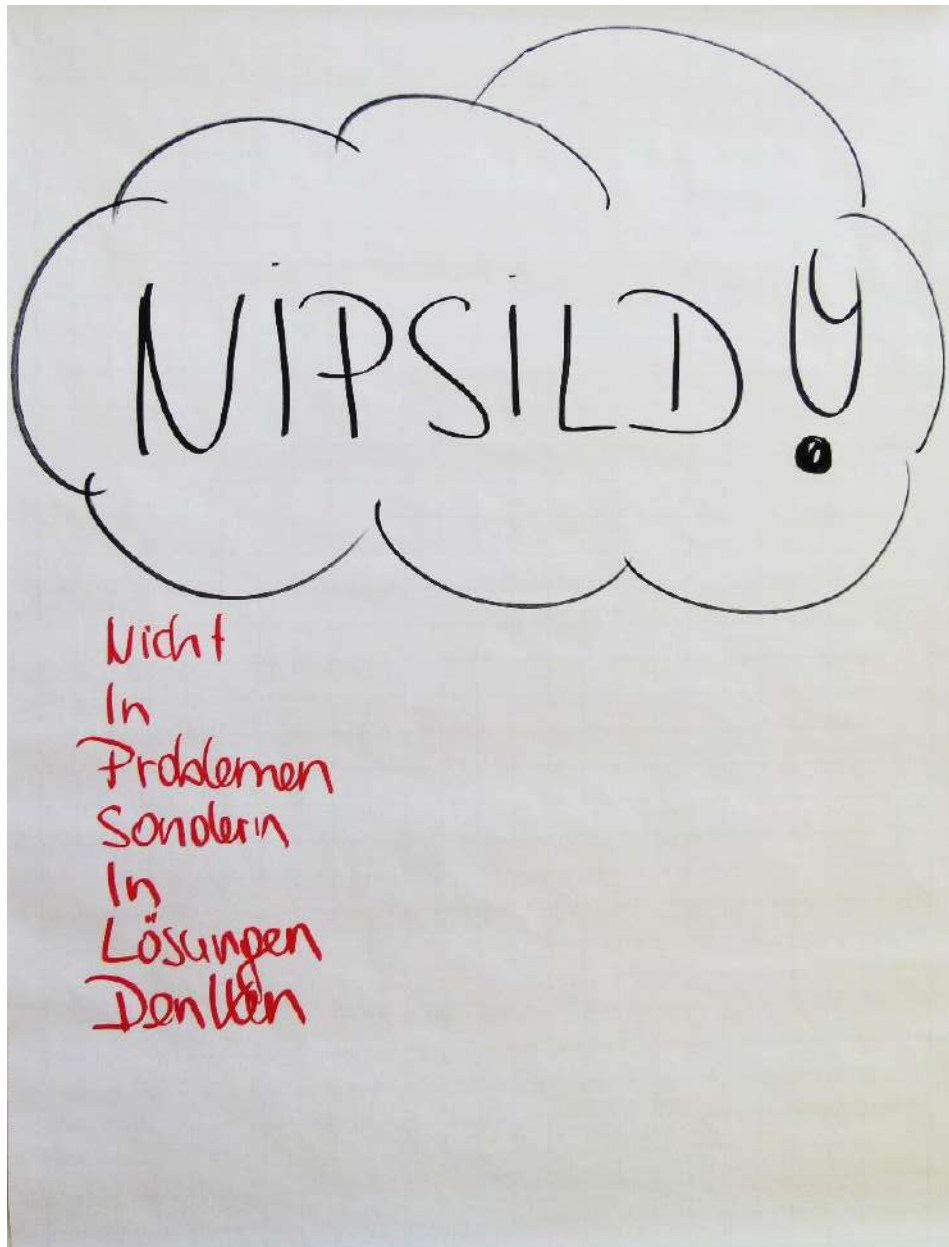 NIPSILD!
Nicht
In
Problemen
Sondern
In
Lösungen
Denken